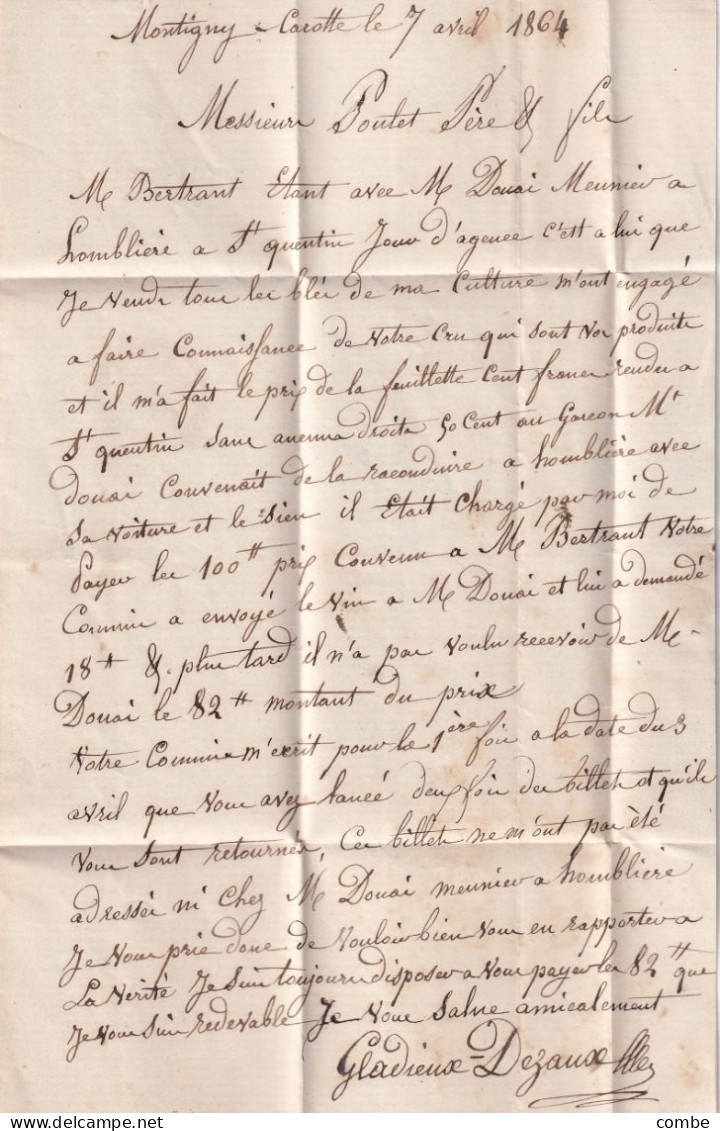 Montigny-Carotte le 7 avril 1864
Messieurs Poulet Père & fils
M Bertrant Etant avec M Douai Meunier a
homblière a St quentin Jour d'agence c'est a lui que
Je vends tous les blés de ma Culture m'ont engagé
a faire Connaissance de Votre Cru qui sont Vos produits
et il m'a fait le prix de la feuillette Cent francs rendu a
St quentin sans aucuns droits 50 Cent au Garcon Mr
douai Convenait de la raconduire a homblière avec
sa voiture et le sien il Etait Chargé par moi de
Payer les 100 tt prix Convenu a M Bertrant Votre
Commis a envoyé le vin a M Douai et lui a demandé
18 tt & plus tard il n'a pas voulu recevoir de M
Douai le 82 tt montant du prix
Votre Commis m'écrit pour la 1ère fois a la date du 3
avril que vous avez lancé deux fois des billets et qu'ils
vous sont retournés, Ces billets ne m'ont pas été
adressés ni chez M Douai meunier a homblière
Je vous prie donc de Vouloir bien vous en rapporter a
La Vérité Je suis toujours disposer a vous payer les 82 tt que
Je vous suis redevable Je vous Salue amicalement
Gladieux-Dezaux
combe